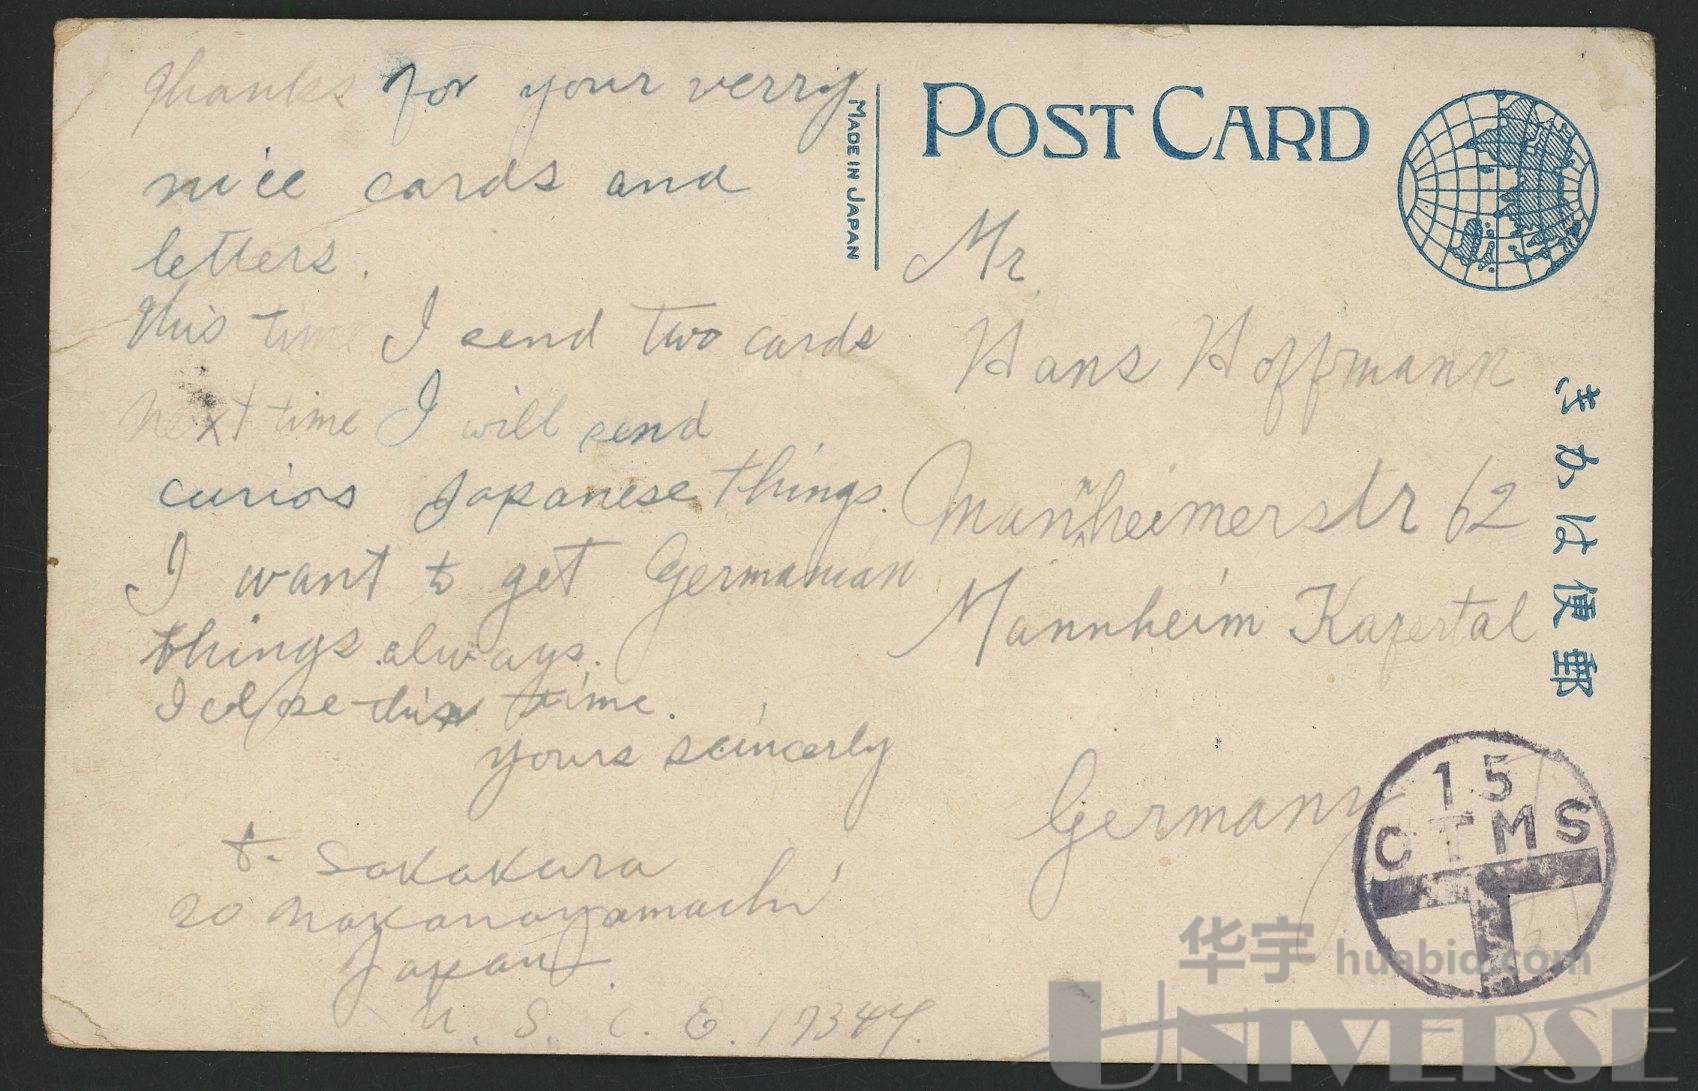 Thanks for your verry
nice cards and
letters.
This time I send two cards
Next time I will send
curios Japanese things.
I want to get Germanian
things always.
I close this time.
yours sincerly
t. Sakakura
20 Nakanoyamachi
Japan
U. S. C. E. 17344.
MADE IN JAPAN
POST CARD
Mr.
Hans Hoffmann
Mannheimerstr 62
Mannheim Kafertal
Germany
きかは便郵
15
CTMS
T
华宇 huabid.com
UNIVERSE